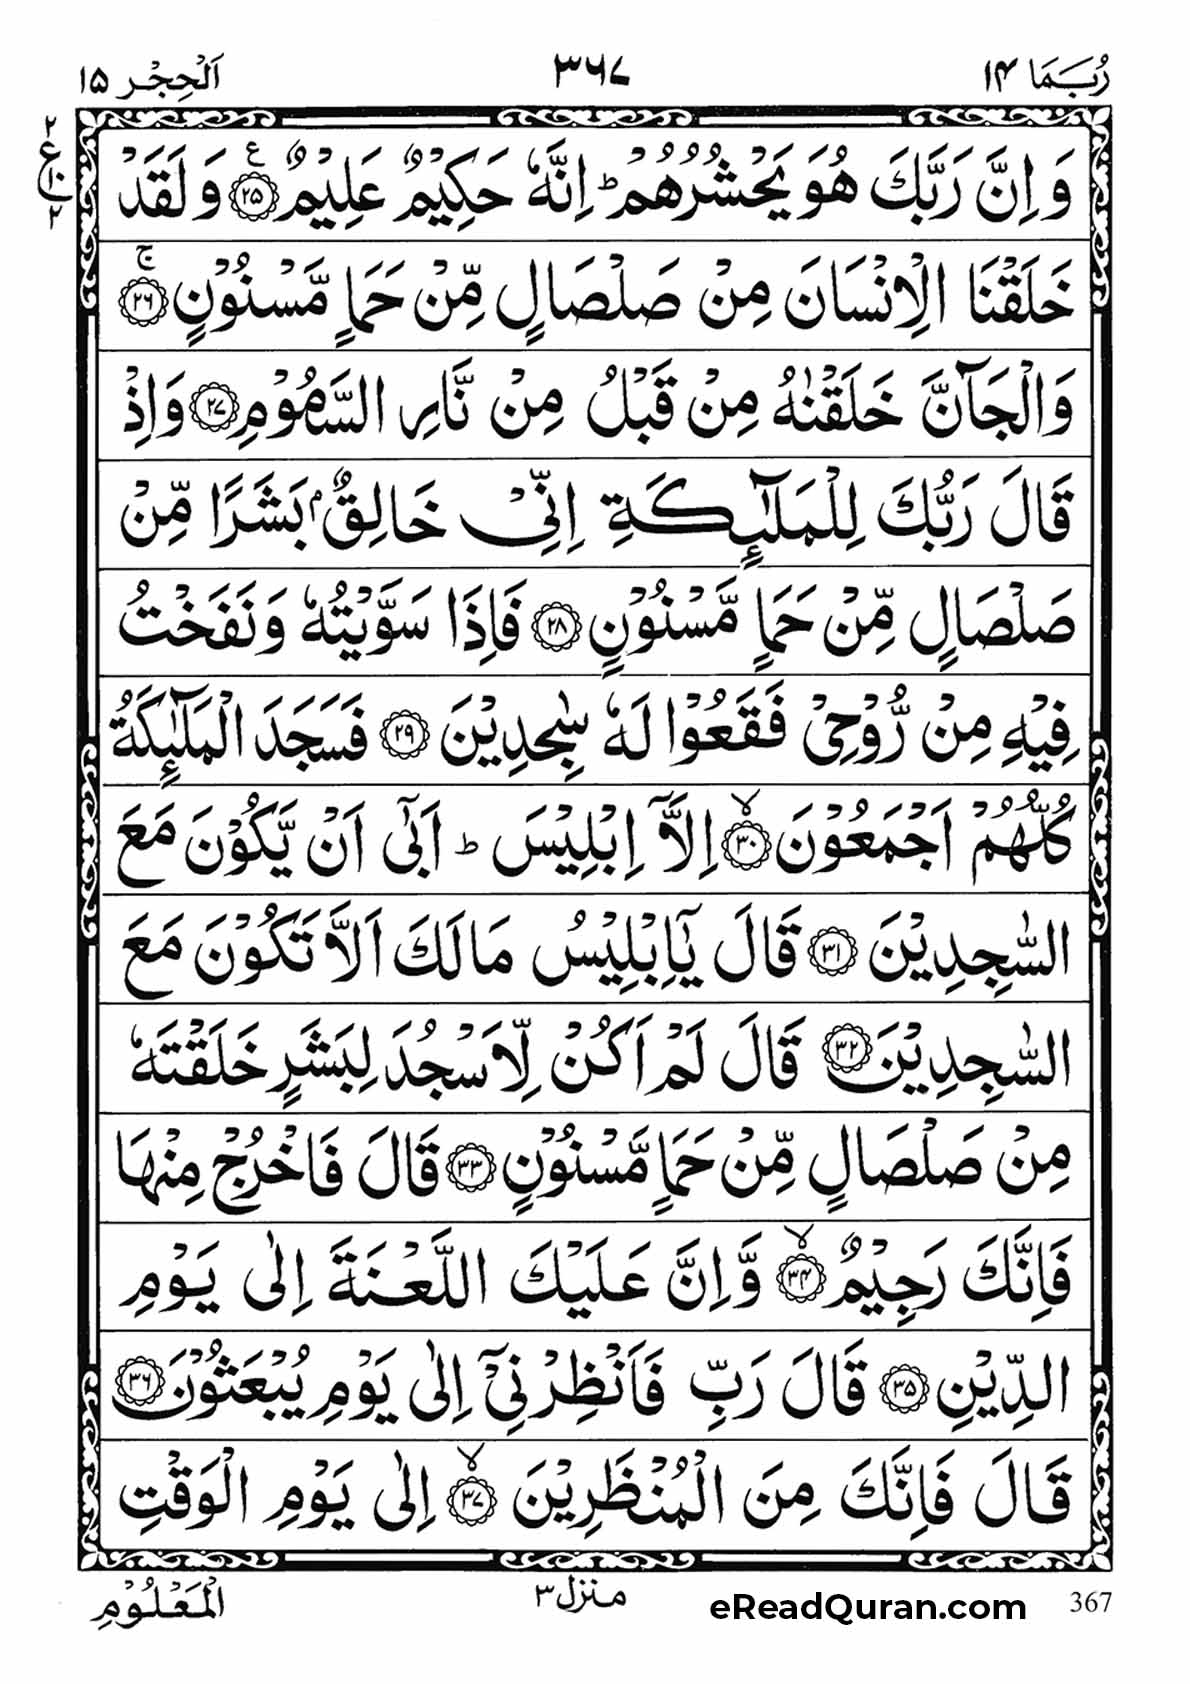 رُبَمَا ١٤
٣٦٧
اَلْحِجْر ١٥
٢
ع
٢
وَاِنَّ رَبَّكَ هُوَ يَحْشُرُهُمْ ؕ اِنَّهٗ حَكِيْمٌ عَلِيْمٌ ۧ ﴿٢٥﴾ وَلَقَدْ
خَلَقْنَا الْاِنْسَانَ مِنْ صَلْصَالٍ مِّنْ حَمَاٍ مَّسْنُوْنٍ ۚ ﴿٢٦﴾
وَالْجَآنَّ خَلَقْنٰهُ مِنْ قَبْلُ مِنْ نَّارِ السَّمُوْمِ ﴿٢٧﴾ وَاِذْ
قَالَ رَبُّكَ لِلْمَلٰٓئِكَةِ اِنِّىْ خَالِقٌۢ بَشَرًا مِّنْ
صَلْصَالٍ مِّنْ حَمَاٍ مَّسْنُوْنٍ ﴿٢٨﴾ فَاِذَا سَوَّيْتُهٗ وَنَفَخْتُ
فِيْهِ مِنْ رُّوْحِىْ فَقَعُوْا لَهٗ سٰجِدِيْنَ ﴿٢٩﴾ فَسَجَدَ الْمَلٰٓئِكَةُ
كُلُّهُمْ اَجْمَعُوْنَ ۙ ﴿٣٠﴾ اِلَّاۤ اِبْلِيْسَ ؕ اَبٰٓى اَنْ يَّكُوْنَ مَعَ
السّٰجِدِيْنَ ﴿٣١﴾ قَالَ يٰۤاِبْلِيْسُ مَا لَكَ اَلَّا تَكُوْنَ مَعَ
السّٰجِدِيْنَ ﴿٣٢﴾ قَالَ لَمْ اَكُنْ لِّاَسْجُدَ لِبَشَرٍ خَلَقْتَهٗ
مِنْ صَلْصَالٍ مِّنْ حَمَاٍ مَّسْنُوْنٍ ﴿٣٣﴾ قَالَ فَاخْرُجْ مِنْهَا
فَاِنَّكَ رَجِيْمٌ ۙ ﴿٣٤﴾ وَّاِنَّ عَلَيْكَ اللَّعْنَةَ اِلٰى يَوْمِ
الدِّيْنِ ﴿٣٥﴾ قَالَ رَبِّ فَاَنْظِرْنِىْۤ اِلٰى يَوْمِ يُبْعَثُوْنَ ﴿٣٦﴾
قَالَ فَاِنَّكَ مِنَ الْمُنْظَرِيْنَ ۙ ﴿٣٧﴾ اِلٰى يَوْمِ الْوَقْتِ
الْمَعْلُوْمِ
منزل ٣
eReadQuran.com
367